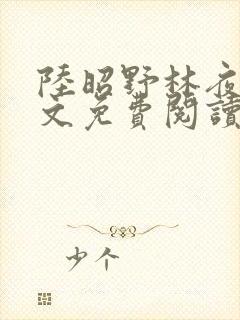 陸昭野林夜
文免費閱讀
少个